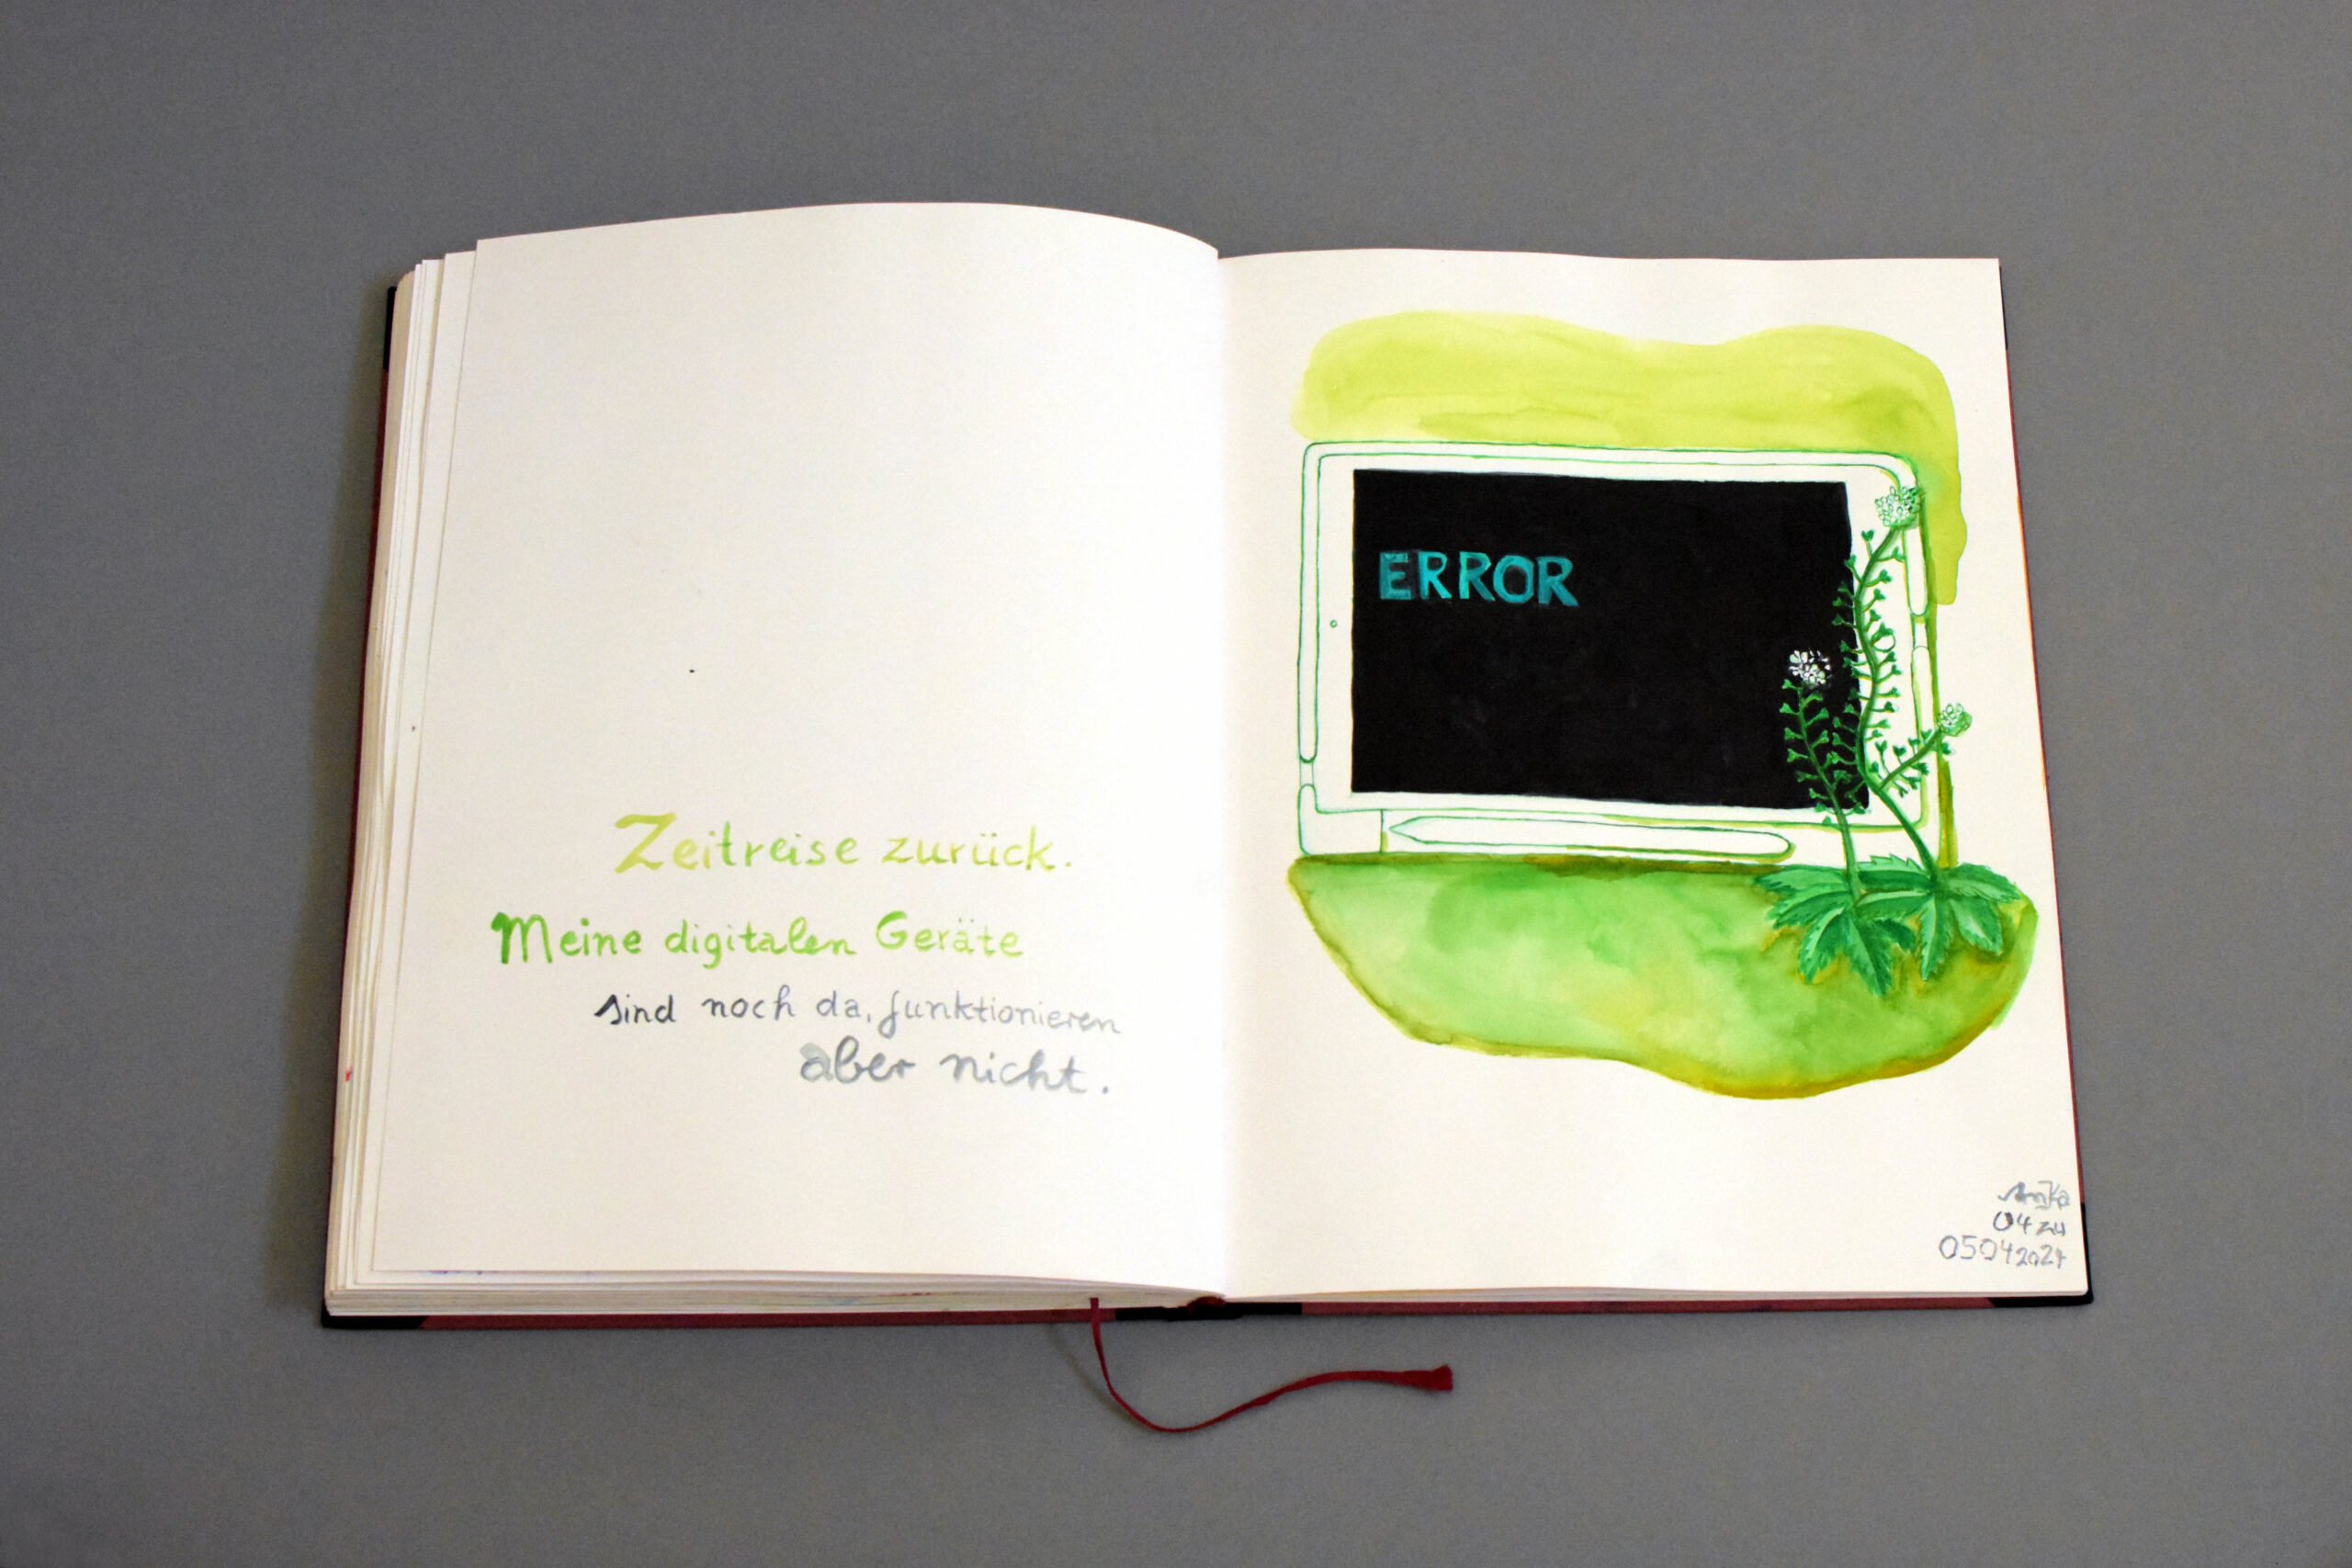 Zeitreise zurück.
Meine digitalen Geräte
sind noch da, funktionieren
aber nicht.
ERROR
04 zu
05042024